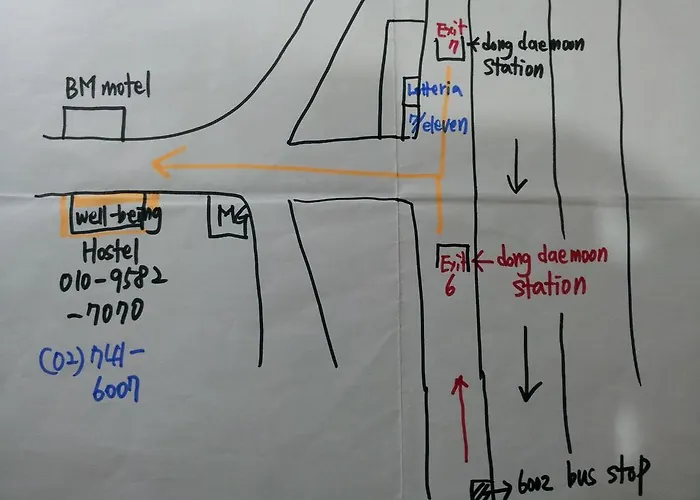 Exit
7
dong daemoon
station
Lotteria
7/eleven
BM motel
well-being
MG
Hostel
010-9582
-7070
(02) 741-
6007
Exit
6
dong daemoon
station
6002 bus stop